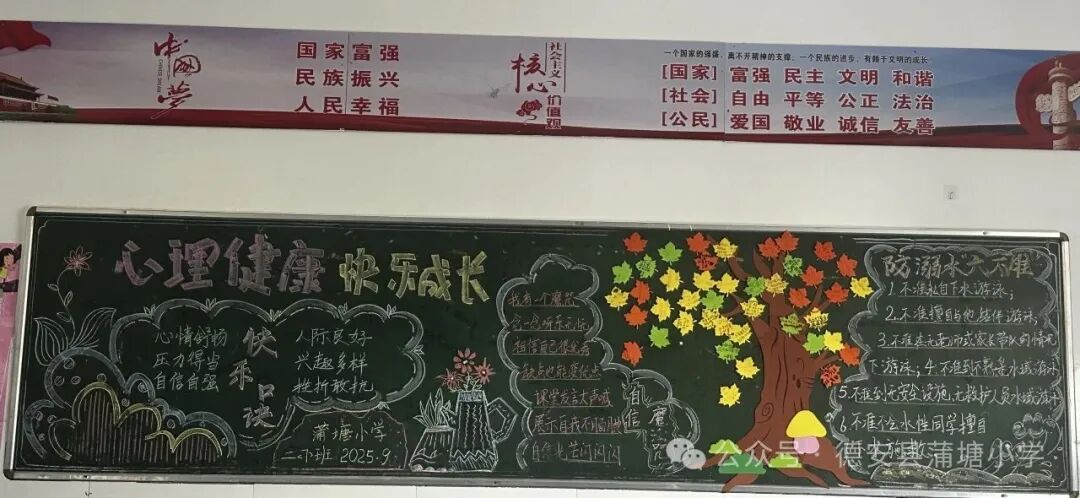 中国梦
国家富强
民族振兴
人民幸福
社会主义
核心
价值观
一个国家的强盛，离不开精神的支撑，一个民族的进步，有赖于文明的成长
[国家] 富强 民主 文明 和谐
[社会] 自由 平等 公正 法治
[公民] 爱国 敬业 诚信 友善
心理健康 快乐成长
快乐口诀
心情舒畅
压力得当
自信自强
人际良好
兴趣多样
挫折敢抗
蒲塘小学
二班 2025.9
我有一个魔咒
念一念
相信自己很
缺点也能变优点
课堂发言大声喊
展示自我不
自信光芒闪闪闪
自信魔咒
防溺水"六不准"
1.不准私自下水游泳；
2.不准擅自与他人结伴游泳；
3.不准在无老师或家长带队的情况
下游泳；4.不准到不熟悉水域游泳
5.不准到无安全设施，无救护人员水域游泳
6.不准不会水性同学擅自
下水施救
公众号·德安县蒲塘小学